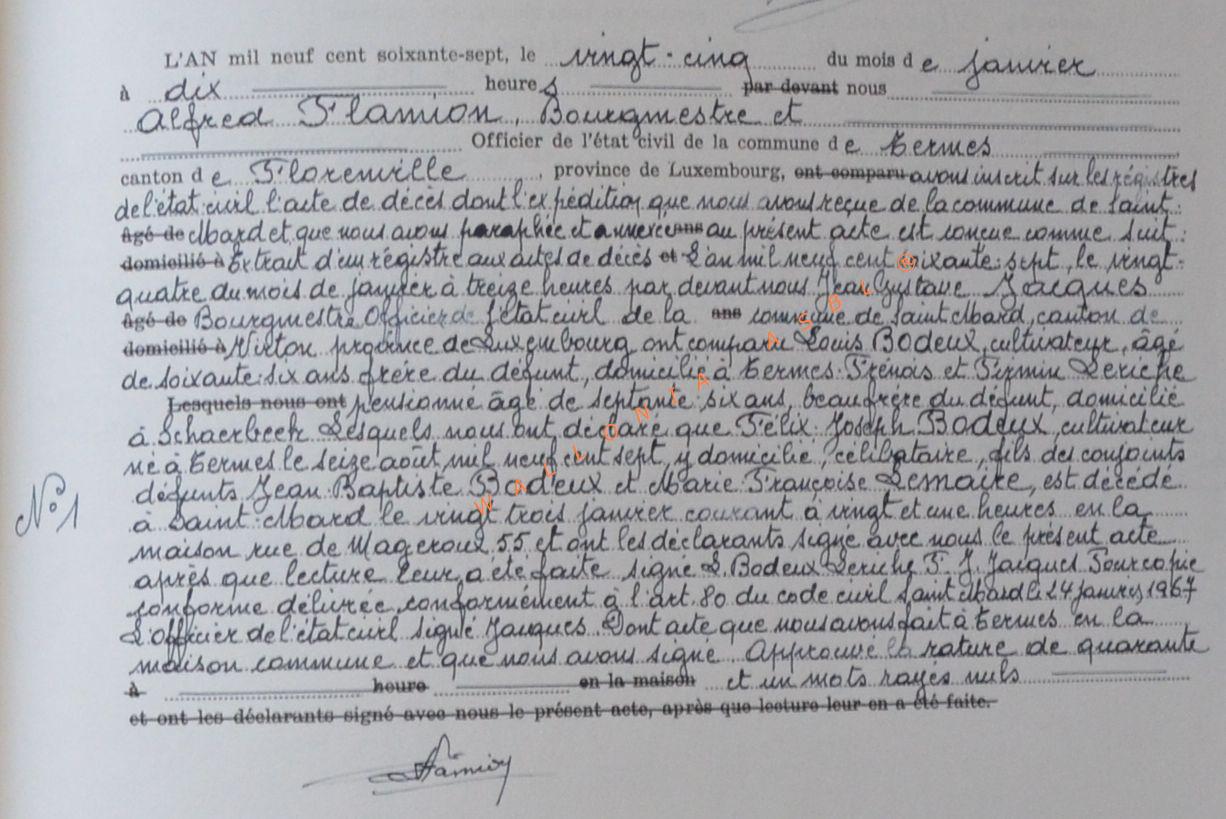 L'AN mil neuf cent soixante-sept, le vingt-cinq du mois de janvier
à dix heures par devant nous
Alfred Flamion, Bourgmestre et
Officier de l'état civil de la commune de Termes
canton de Florenville, province de Luxembourg, ont comparu avons inscrit sur les régistres
de l'état civil l'acte de décès dont l'expédition que nous avons reçue de la commune de Saint-
âgé de Mard et que nous avons paraphée et annexée ans au présent acte est conçue comme suit:
domicilié à Extrait d'un régistre aux actes de décès et L'an mil neuf cent soixante-sept, le vingt-
quatre du mois de janvier à treize heures par devant nous Jean Gustave Jacques
âgé de Bourgmestre Officier de l'état civil de la ans commune de Saint Mard, canton de
domicilié à Virton province de Luxembourg ont comparu Louis Bodeux, cultivateur, âgé
de soixante-six ans frère du défunt, domicilié à Termes-Frenois et Firmin Leriche
Lesquels nous ont pensionné âgé de septante-six ans, beau-frère du défunt, domicilié
à Schaerbeek Lesquels nous ont déclaré que Félix-Joseph Bodeux, cultivateur
né à Termes le seize août mil neuf cent sept, y domicilié, célibataire, fils des conjoints
défunts Jean-Baptiste Bodeux et Marie Françoise Lemaire, est décédé
N°1
à Saint-Mard le vingt trois janvier courant à vingt et une heures en la
maison rue de Mageroux 55 et ont les déclarants signé avec nous le présent acte
après que lecture leur a été faite signé L. Bodeux Leriche F. J. Jacques Pour copie
conforme délivrée conformément à l'art. 80 du code civil Saint Mard le 24 janvier 1967
L'officier de l'état civil signé Jacques. Dont acte que nous avons fait à Termes en la
maison commune et que nous avons signé Approuvé la rature de quarante
à heure en la maison et un mots rayés nuls
et ont les déclarants signé avec nous le présent acte, après que lecture leur en a été faite.
Flamion
WALLONIA ASBL ©